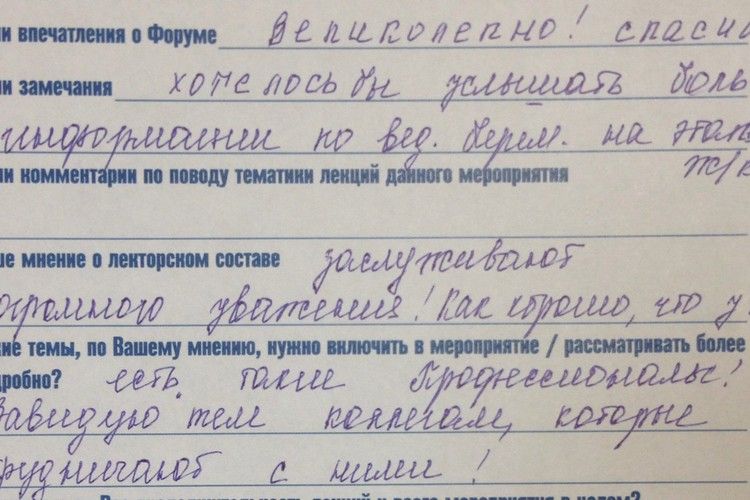 и впечатления о Форуме Великолепно! спаси
и замечания хотелось бы услышать боль
информации по вед. берем. на этап
ж/к
и комментарии по поводу тематики лекций данного мероприятия
ше мнение о лекторском составе заслуживают
огромного уважения! Как хорошо, что у
ие темы, по Вашему мнению, нужно включить в мероприятие / рассматривать более
дробно? есть такие Профессионалы!
Завидую тем коллегам, которые
рудничают с ними!